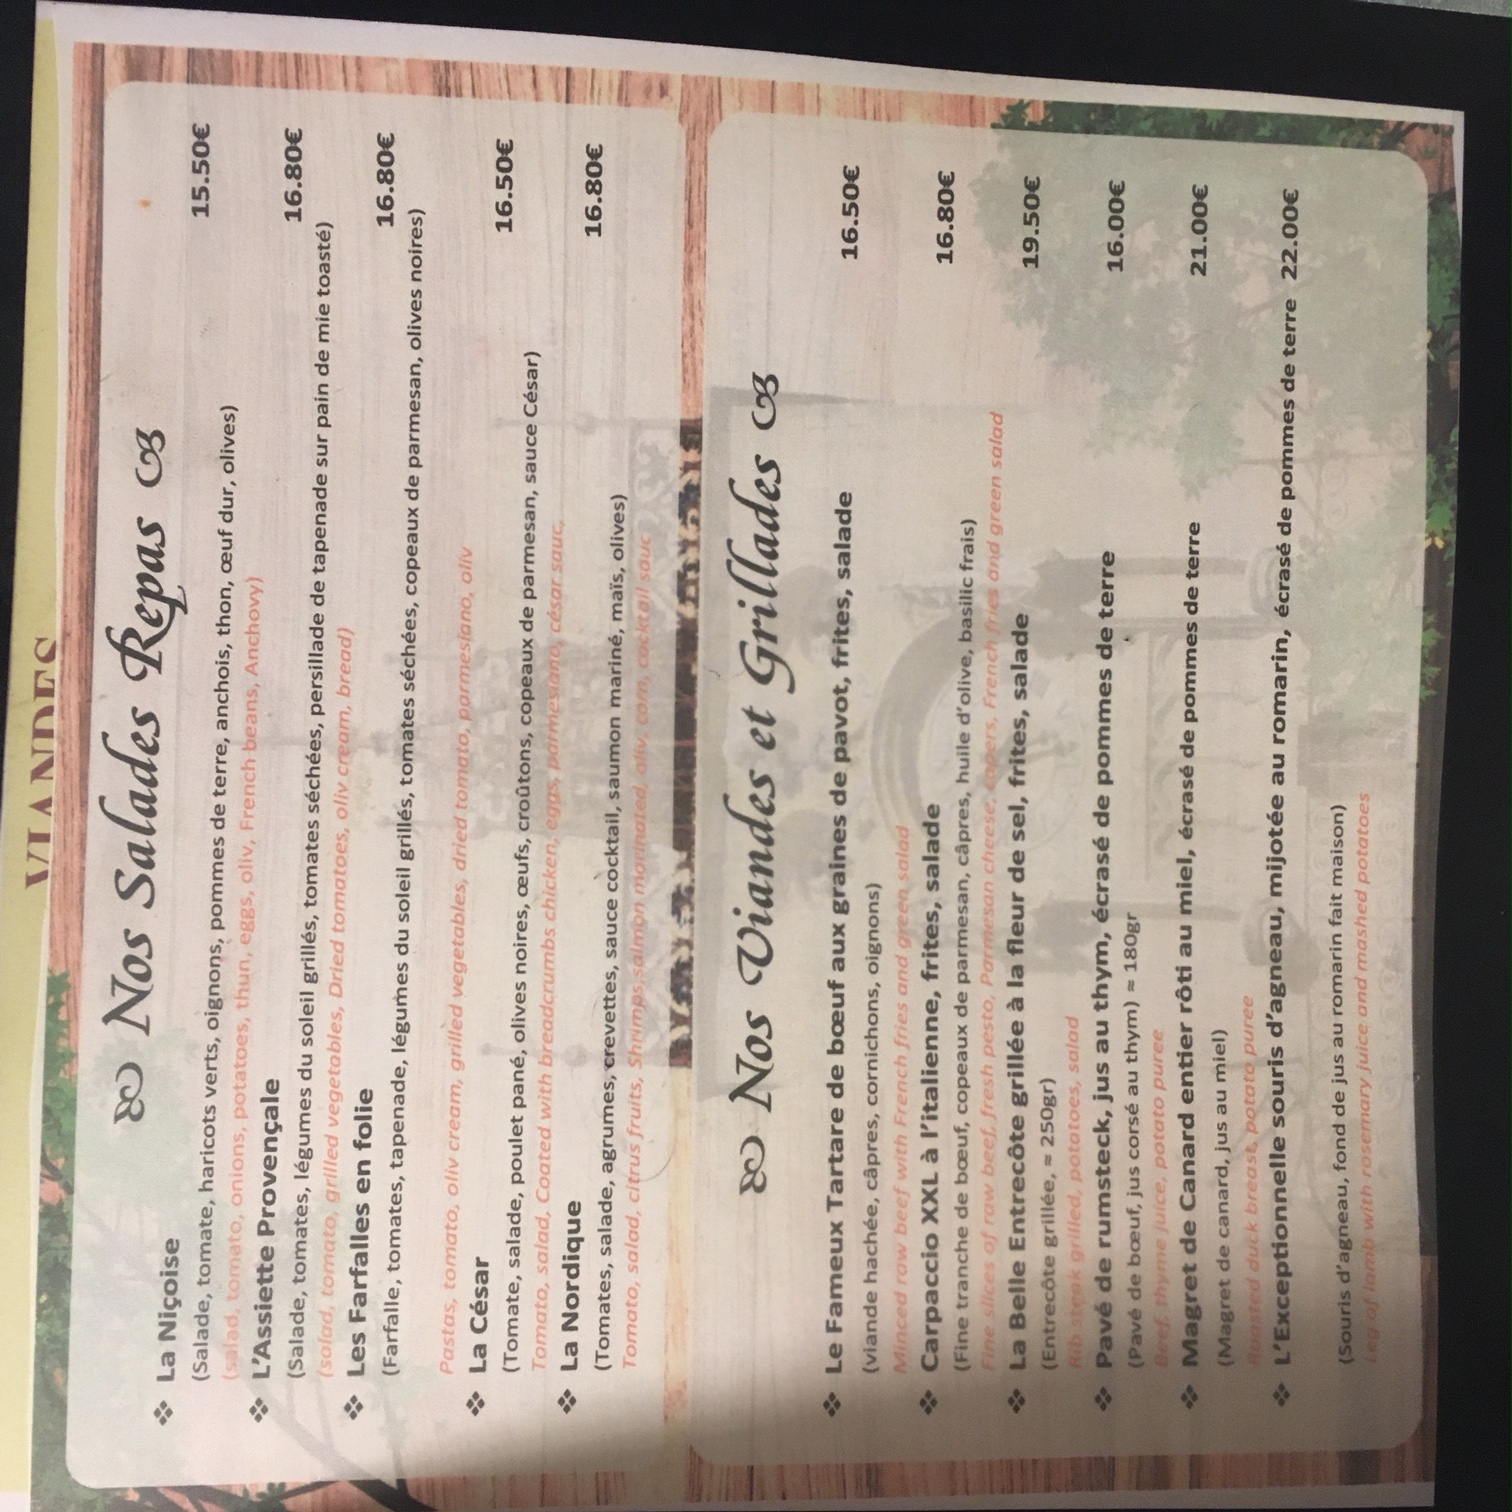 VIANDES
Nos Salades Repas
❖ La Niçoise 15.50€
(Salade, tomate, haricots verts, oignons, pommes de terre, anchois, thon, œuf dur, olives)
(salad, tomato, onions, potatoes, thun, eggs, oliv, French beans, Anchovy)
❖ L'Assiette Provençale 16.80€
(Salade, tomates, légumes du soleil grillés, tomates séchées, persillade de tapenade sur pain de mie toasté)
(salad, tomato, grilled vegetables, Dried tomatoes, oliv cream, bread)
❖ Les Farfalles en folie 16.80€
(Farfalle, tomates, tapenade, légumes du soleil grillés, tomates séchées, copeaux de parmesan, olives noires)
Pastas, tomato, oliv cream, grilled vegetables, dried tomato, parmesiano, oliv
❖ La César 16.50€
(Tomate, salade, poulet pané, olives noires, œufs, croûtons, copeaux de parmesan, sauce César)
Tomato, salad, Coated with breadcrumbs chicken, eggs, parmesiano, césar sauc,
❖ La Nordique 16.80€
(Tomates, salade, agrumes, crevettes, sauce cocktail, saumon mariné, maïs, olives)
Tomato, salad, citrus fruits, Shrimps, salmon marinated, oliv, corn, cocktail sauc
Nos Viandes et Grillades
❖ Le Fameux Tartare de bœuf aux graines de pavot, frites, salade 16.50€
(viande hachée, câpres, cornichons, oignons)
Minced raw beef with French fries and green salad
❖ Carpaccio XXL à l'italienne, frites, salade 16.80€
(Fine tranche de bœuf, copeaux de parmesan, câpres, huile d'olive, basilic frais)
Fine slices of raw beef, fresh pesto, Parmesan cheese, capers, French fries and green salad
❖ La Belle Entrecôte grillée à la fleur de sel, frites, salade 19.50€
(Entrecôte grillée, ≈ 250gr)
Rib steak grilled, potatoes, salad
❖ Pavé de rumsteck, jus au thym, écrasé de pommes de terre 16.00€
(Pavé de bœuf, jus corsé au thym) ≈ 180gr
Beef, thyme juice, potato puree
❖ Magret de Canard entier rôti au miel, écrasé de pommes de terre 21.00€
(Magret de canard, jus au miel)
Roasted duck breast, potato puree
❖ L'Exceptionnelle souris d'agneau, mijotée au romarin, écrasé de pommes de terre 22.00€
(Souris d'agneau, fond de jus au romarin fait maison)
Leg of lamb with rosemary juice and mashed potatoes